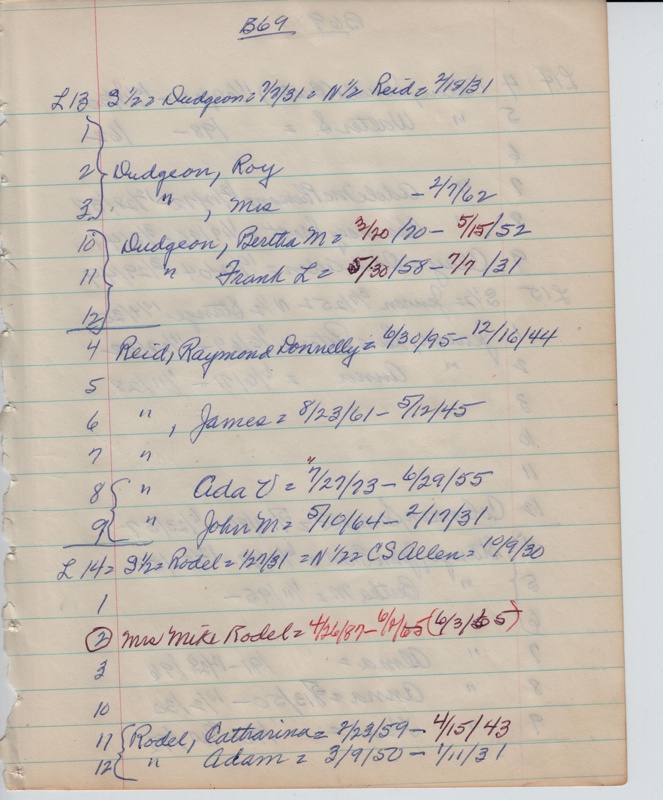 B69
L 13 S 1/2 = Dudgeon = 7/7/31 = N 1/2 Reid = 2/18/31
1
2 Dudgeon, Roy
3 " , Mrs - 2/7/62
10 Dudgeon, Bertha M = 3/20/70 - 5/15/52
11 " Frank L = 5/30/58 - 7/7/31
12
4 Reid, Raymond Donnelly = 6/30/95 - 12/16/44
5
6 " , James = 8/23/61 - 5/12/45
7 "
8 " Ada V = 7/27/73 - 6/29/55
9 " John M = 5/10/64 - 2/17/31
L 14 = S 1/2 = Rodel = 1/27/31 = N 1/2 = C S Allen = 10/9/30
1
2 Mrs Mike Rodel = 4/26/87 - 6/ /65 (6/3/65)
3
10
11 Rodel, Catharina = 2/23/59 - 4/15/43
12 " Adam = 3/9/50 - 1/11/31